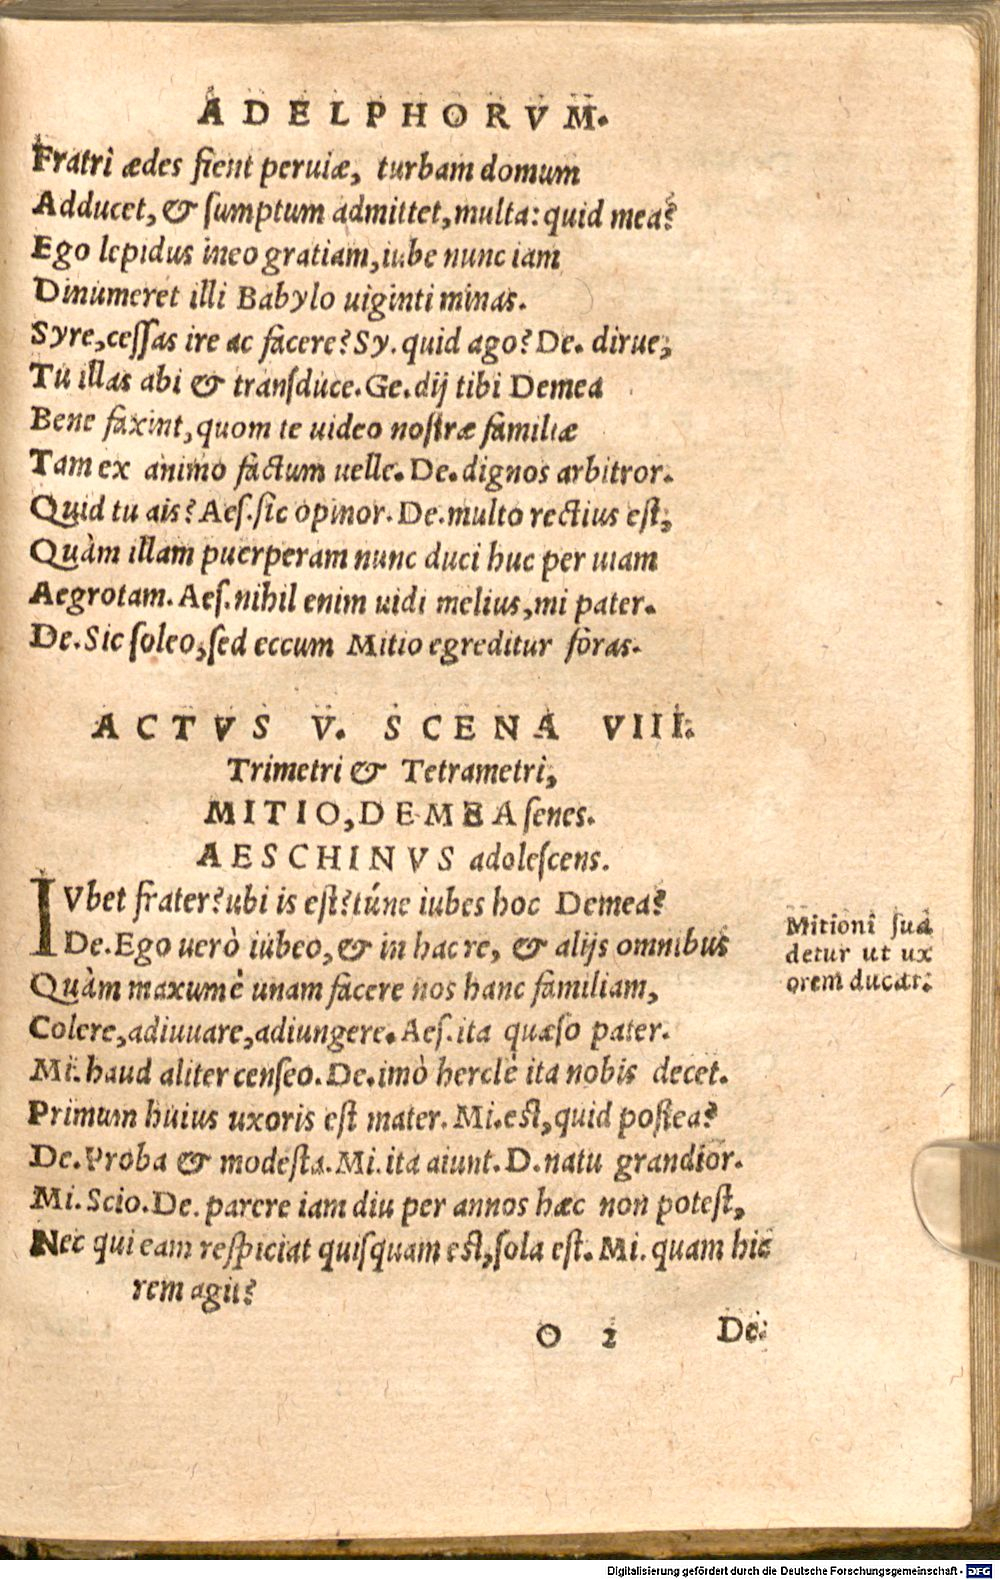 ADELPHORVM.
Fratri ædes fient peruiæ, turbam domum
Adducet, & ſumptum admittet, multa: quid mea?
Ego lepidus ineo gratiam, iube nunc iam
Dinumeret illi Babylo uiginti minas.
Syre, ceſſas ire ac facere? Sy. quid ago? De. dirue,
Tu illas abi & tranſduce. Ge. dij tibi Demea
Bene faxint, quom te uideo noſtræ familiæ
Tam ex animo factum uelle. De. dignos arbitror.
Quid tu ais? Aeſ. ſic opinor. De. multo rectius eſt,
Quàm illam puerperam nunc duci huc per uiam
Aegrotam. Aeſ. nihil enim uidi melius, mi pater.
De. Sic ſoleo, ſed eccum Mitio egreditur foras.
ACTVS V. SCENA VIII.
Trimetri & Tetrametri,
MITIO, DEMEA ſenes.
AESCHINVS adoleſcens.
IVbet frater? ubi is eſt? túne iubes hoc Demea?
De. Ego uerò iubeo, & in hac re, & alijs omnibus
Quàm maxumè unam facere nos hanc familiam,
Colere, adiuuare, adiungere. Aeſ. ita quæſo pater.
Mi. haud aliter cenſeo. De. imò herclè ita nobis decet.
Primum huius uxoris eſt mater. Mi. eſt, quid poſtea?
De. Proba & modeſta. Mi. ita aiunt. D. natu grandior.
Mi. Scio. De. parere iam diu per annos hæc non poteſt,
Nec qui eam reſpiciat quiſquam eſt, ſola eſt. Mi. quam hic
rem agit?
Mitioni ſua
detur ut ux
orem ducat.
O 2 De.
Digitalisierung gefördert durch die Deutsche Forschungsgemeinschaft - DFG